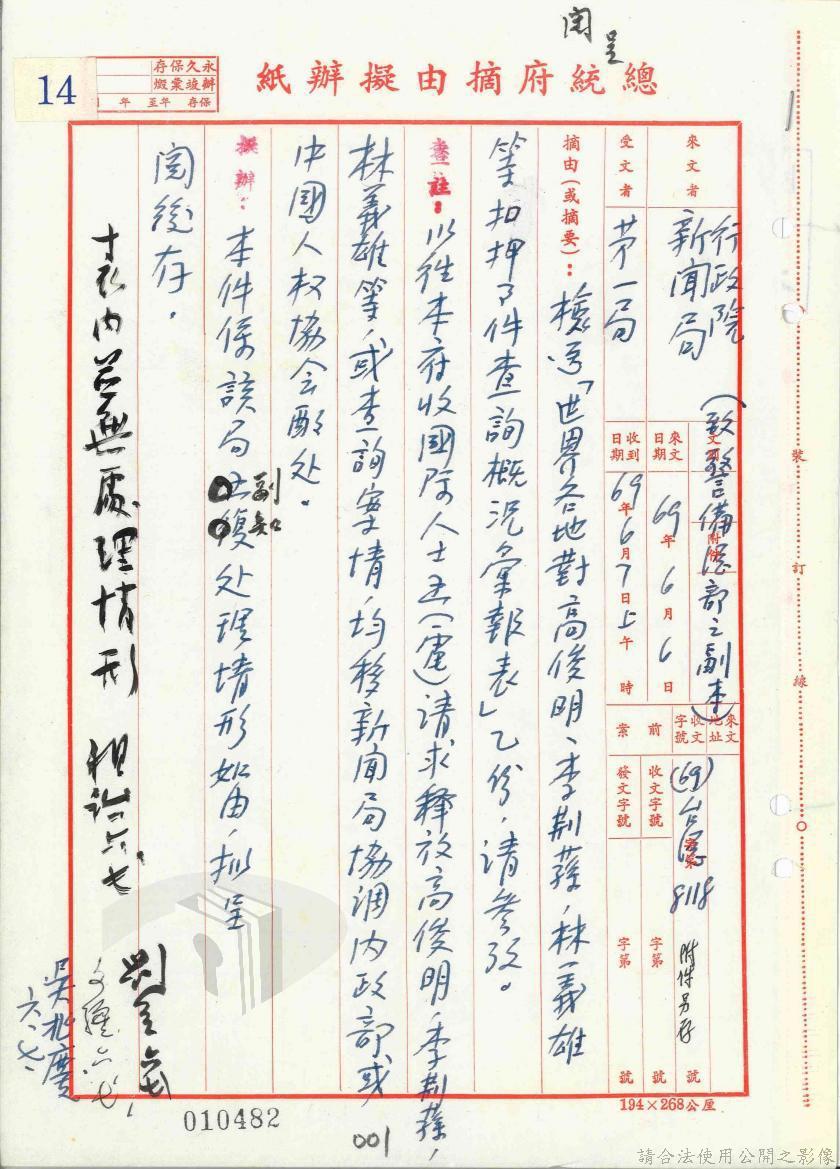 閱呈
總統府摘由擬辦紙
永久保存
辦竣彙繳
保存 年至 年
14
來文者
行政院
新聞局
(致警備總部之副本)
受文者
第一局
附件
來文日期
69年6月6日
收到日期
69年6月7日上午 時
來文地址
收文字號
(69)台
8118
附件另存
號
前案
收文字號
字第
號
發文字號
字第
號
摘由(或摘要):檢送「世界各地對高俊明、李荆蓀、林義雄
等扣押事件查詢概況彙報表」乙份,請參考。
查註:以往本府收國际人士函(電)請求释放高俊明,李荆蓀,
林義雄等,或查詢案情,均移新聞局協調内政部或
中國人权協会酌处。
擬辦:本件係該局函復处理情形如由,擬呈
副知
閱後存。
表内並無處理情形
六七
吳兆廣
六.七.
裝
訂
線
010482
001
194×268公厘
請合法使用公開之影像